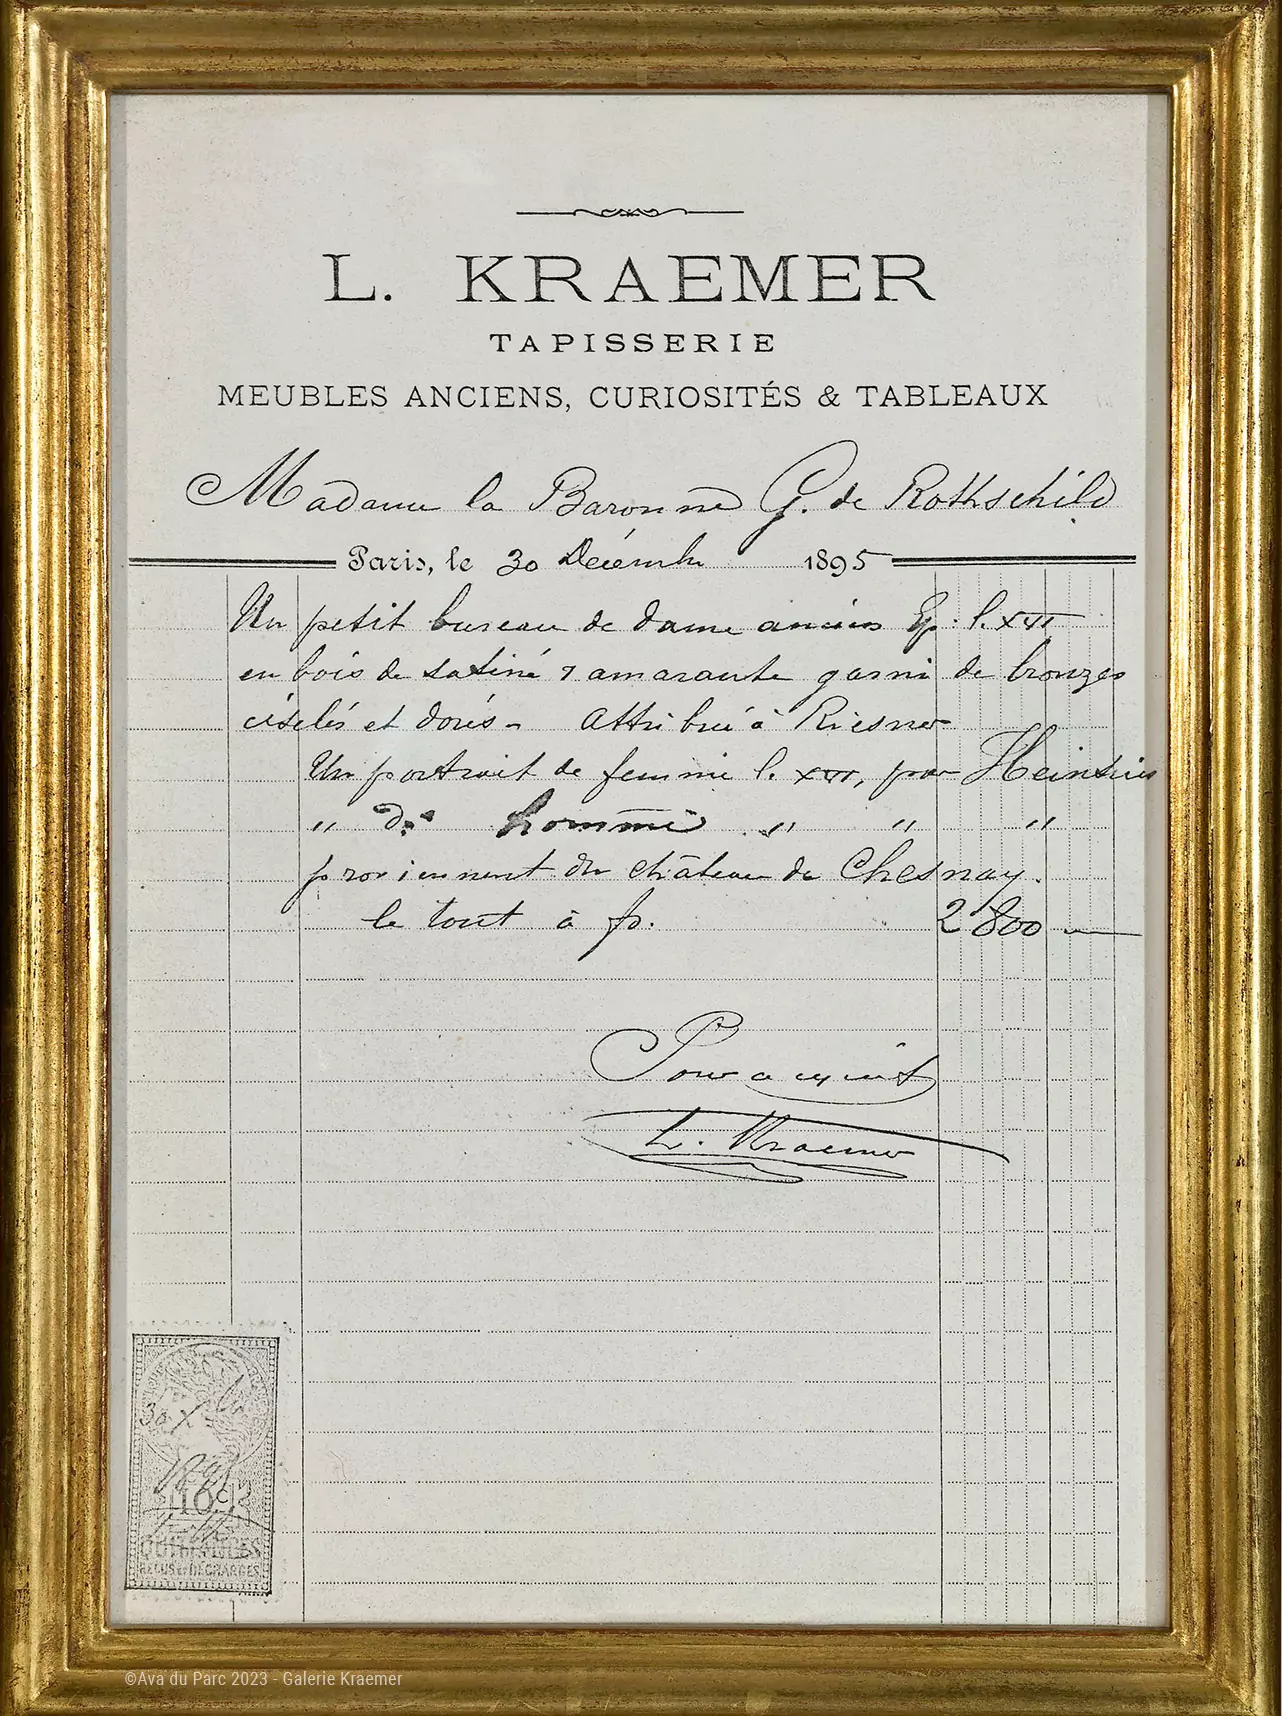 L. KRAEMER
TAPISSERIE
MEUBLES ANCIENS, CURIOSITÉS & TABLEAUX
Madame la Baronne G. de Rothschild
Paris, le 30 Décembre 1895
Un petit bureau de dame ancien Ep. l. XVI
en bois de satiné & amarante garni de bronzes
ciselés et dorés - Attribué à Riesner
Un portrait de femme l. XVI, par Heinsius
" do homme " " "
proviennent du château de Chesnay.
le tout à fr. 2'800 —
Pour acquit
L. Kraemer
30 X
1895
10c
QUITTANCES
REÇUS ET DÉCHARGES
©Ava du Parc 2023 - Galerie Kraemer